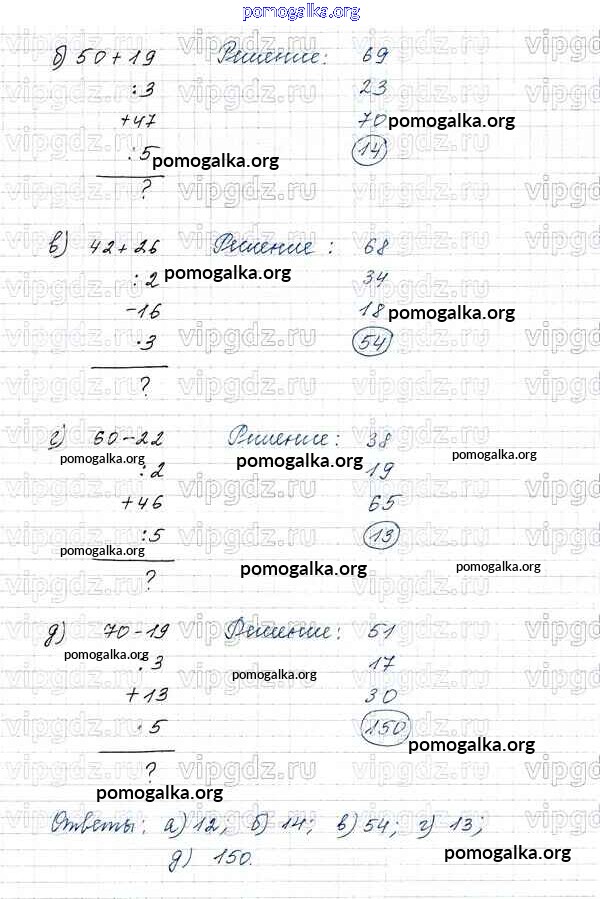 pomogalka.org
б) 50+19 Решение: 69
:3 23
+47 70 pomogalka.org
:5 pomogalka.org 14
?
в) 42+26 Решение: 68
:2 pomogalka.org 34
-16 18 pomogalka.org
·3 54
?
г) 60-22 Решение: 38
pomogalka.org pomogalka.org pomogalka.org
:2 19
+46 65
:5 13
pomogalka.org
? pomogalka.org pomogalka.org
д) 70-19 Решение: 51
pomogalka.org
:3 pomogalka.org 17
+13 30
·5 150
pomogalka.org
?
pomogalka.org
Ответы: а) 12; б) 14; в) 54; г) 13;
д) 150.
pomogalka.org
vipgdz.ru